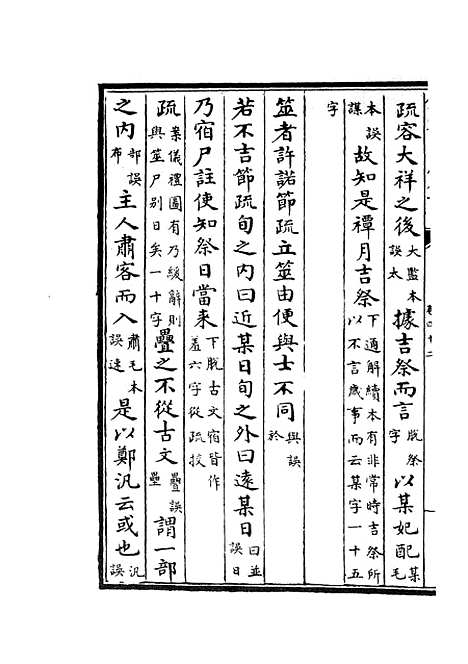 疏容大祥之後大監本誤太據吉祭而言脫祭字以某妃配某毛
本誤謀故知是禫月吉祭下通解續本有非常時吉祭所以不言歲事而云某字一十五
字
筮者許諾節疏立筮由便與士不同與誤於
若不吉節疏旬之內曰近某日旬之外曰遠某日曰並誤日
乃宿尸註使知祭日當来下脫古文宿皆作羞六字從疏挍
疏案儀禮圖有乃緩辭則與筮尸别日矣一十字疊之不從古文疊誤壘謂一部
之内部誤布主人肅客而入肅毛本誤速是以鄭汎云或也汎誤